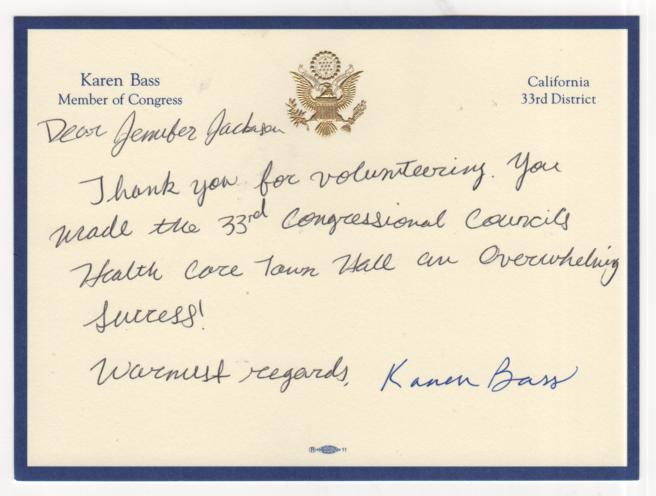 Karen Bass
Member of Congress
California
33rd District
Dear Jennifer Jackson
Thank you for volunteering. You
made the 33rd Congressional Councils
Health Care Town Hall an Overwhelming
Success!
Warmest regards, Karen Bass